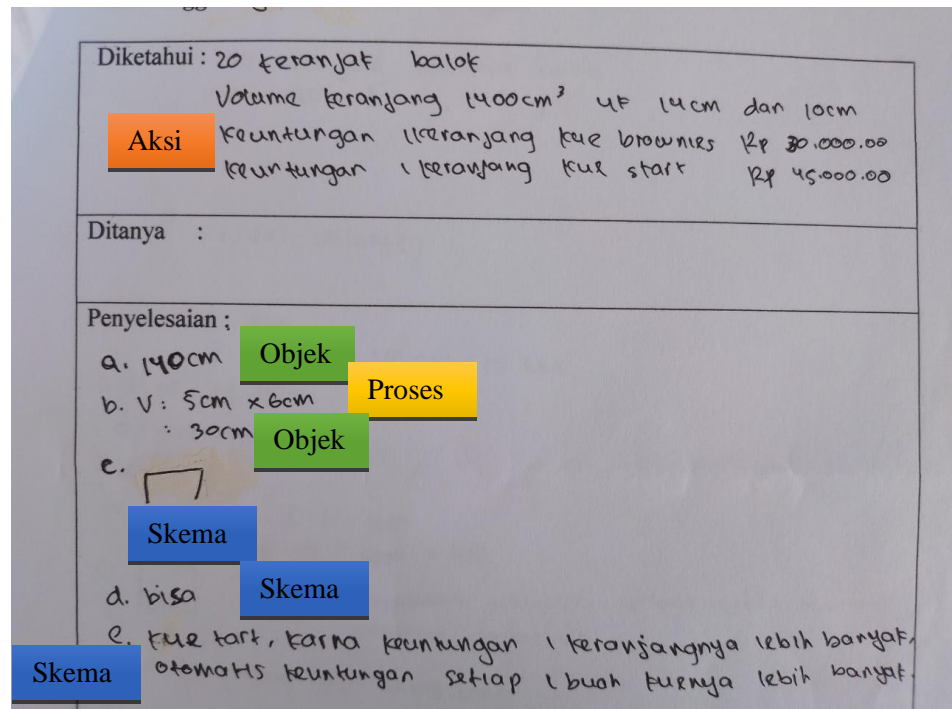 Diketahui : 20 keranjak balok
Volume keranjang 1400cm³ uk 14cm dan 10cm
Aksi
Keuntungan 1 keranjang kue brownies Rp 30.000.00
Keuntungan 1 keranjang kue start Rp 45.000.00
Ditanya :
Penyelesaian :
a. 140cm
Objek
b. V : 5cm x 6cm
Proses
: 30cm
Objek
c.
Skema
d. bisa
Skema
e. kue tart, karna keuntungan 1 keranjangnya lebih banyak,
Skema
otomatis keuntungan setiap 1 buah kuenya lebih banyak.